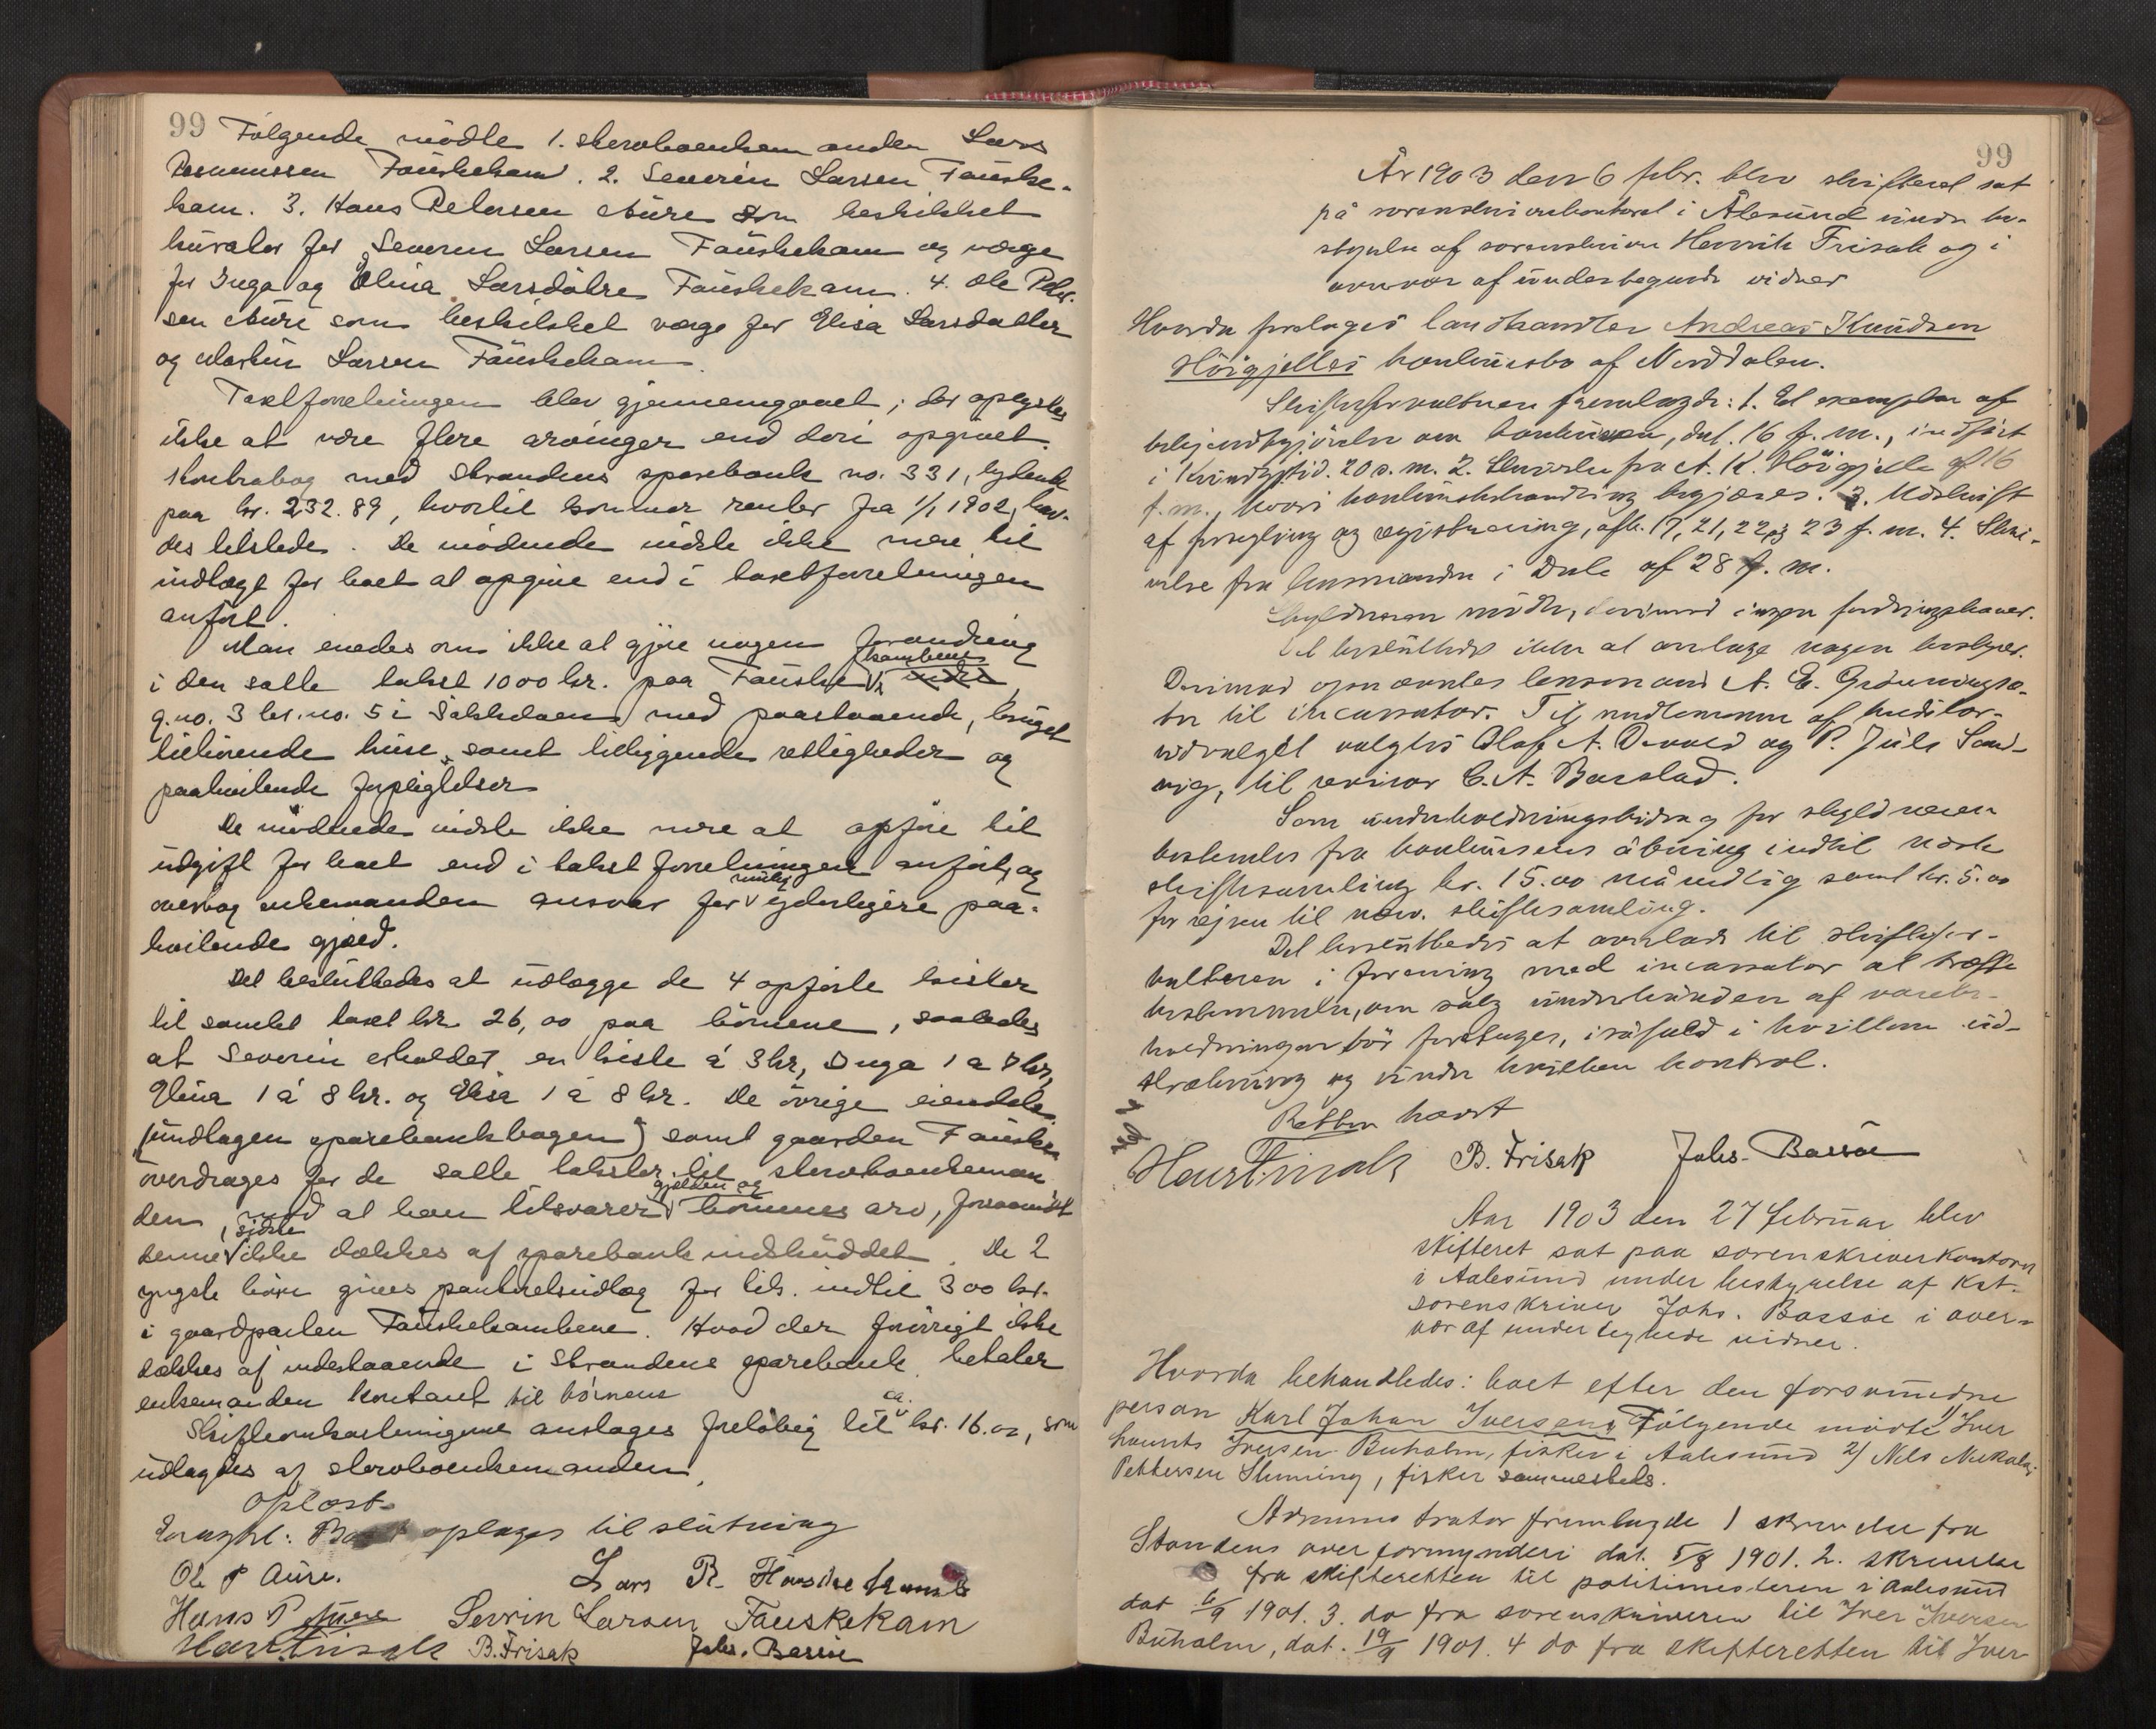 99 Følgende mødte 1. stervboenkemanden Lars
Rasmussen Fauskekam. 2. Severin Larsen Fauske-
kam. 3. Hans Petersen Aure som beskikket
kurator for Severin Larsen Fauskekam og værge
for Inga og Elina Larsdøtre Fauskekam. 4. Ole Peter-
sen Aure som beskikket værge for Elisa Larsdatter
og Martin Larsen Fauskekam.
Taxtforretningen blev gjennemgaaet; der oplystes
ikke at være flere arvinger end deri opgivet.
Kontrabog med Strandens sparebank no. 331, lydende
paa kr. 232.89, hvortil kommer renter fra 1/1 1902, hav-
des tilstede. De mødende vidste ikke mere til
indtægt for boet at opgive end i taxtforretningen
anført.
Man enedes om ikke at gjøre nogen forandring
i den satte takst 1000 kr. paa Fauske kambene
g.no. 3 br.no. 5 i Søkkelven med paastaaende, bruget
tilhørende huse, samt tilliggende rettigheder og
paahvilende forpligtelser
De mødende vidste ikke mere at opføre til
udgift for boet end i takstforretningen anført, og
overtog enkemanden ansvar for mulig yderligere paa-
hvilende gjæld.
Det besluttedes at udlægge de 4 opførte kister
til samlet taxt kr. 26,00 paa børnene, saaledes
at Severin erholder en kiste á 3 kr, Inga 1 a 7 kr,
Elina 1 á 8 kr. og Elisa 1 á 8 kr. De øvrige eiendele
(undtagen sparebankbogen) samt gaarden Fauske
overdrages for de satte takster til stervboenkeman
den, mod at han tilsvarer gjælden og børnenes arv, forsaavidt
denne sidste ikke dækkes af sparebankindskuddet. De 2
yngste børn gives panteretsudlæg for tils. indtil 300 kr.
i gaardparten Fauskekambene. Hvad der forøvrigt ikke
dækkes af indestaaende i Strandens sparebank betaler
enkemanden kontant til børnene
Skifteomkostningerne anslages foreløbig til ca. kr. 16.00, som
udlagdes af stervboenkemanden.
Oplæst.
Eragtet: Boet optages til slutning
Ole P Aure. Lars R. Fauskekamb
Hans P Aure Sevrin Larsen Fauskekam
Henr Frisak B. Frisak Johs. Bassøe
99
År 1903 den 6 febr. blev skifteret sat
på sorenskriverkontoret i Ålesund under be-
styrelse af sorenskriver Henrik Frisak og i
overvær af undertegnede vidner
Hvorda foretoges landhandler Andreas Knudsen
Høigjelles konkursbo af Norddalen.
Skifteforvalteren fremlagde: 1. Et exemplar af
bekjendtgjørelse om konkursen, dat. 16 f. m., indført
i Kundg.tid. 20 s. m. 2. Skrivelse fra A. K. Høigjelle af 16
f. m., hvori konkursbehandling begjæres. 3. Udskrift
af forsegling og registrering, afh. 17, 21, 22 og 23 f. m. 4. Skri-
velse fra lensmanden i Dale af 28 f. m.
Skyldneren mødte, derimod ingen fordringshaver.
Det besluttedes ikke at antage nogen bestyrer.
Derimod opnævntes lensmand A. E. Grønningsæ-
ter til incassator. Til medlemmer af kreditor-
udvalget valgtes Olaf A. Devold og P. Juls Sand-
vig, til revisor C. A. Barstad.
Som underholdningsbidrag for skyldneren
bestemtes fra konkursens åbning indtil næste
skiftesamling kr. 15.00 månedlig samt kr. 5.00
for rejsen til nærv. skiftesamling.
Det besluttedes at overlade til skiftefor-
valteren i forening med incassator at træffe
bestemmelse, om salg underhånden af varebe-
holdningen bør foretages, i såfald i hvilken ud-
strækning og under hvilken kontrol.
Retten hævet
Henr Frisak B. Frisak Johs. Bassøe
Aar 1903 den 27 februar blev
skifteret sat paa sorenskriverkontoret
i Aalesund under bestyrelse af Kst.
sorenskriver Johs. Bassøe i over-
vær af undertegnede vidner.
Hvorda behandledes: boet efter den forsvundne
person Karl Johan Iversen. Følgende mødte 1/ Iver
Iversen Buholm, fisker i Aalesund 2/ Nils Nikolai
Pettersen Slyning, fisker sammesteds.
Administrator fremlagde 1 skrivelse fra
Standens overformynderi dat. 5/8 1901. 2. skrivelse
fra skifteretten til politimesteren i Aalesund
dat 6/9 1901. 3. do fra sorenskriveren til Iver Iversen
Buholm, dat. 19/9 1901. 4 do fra skifteretten til Iver